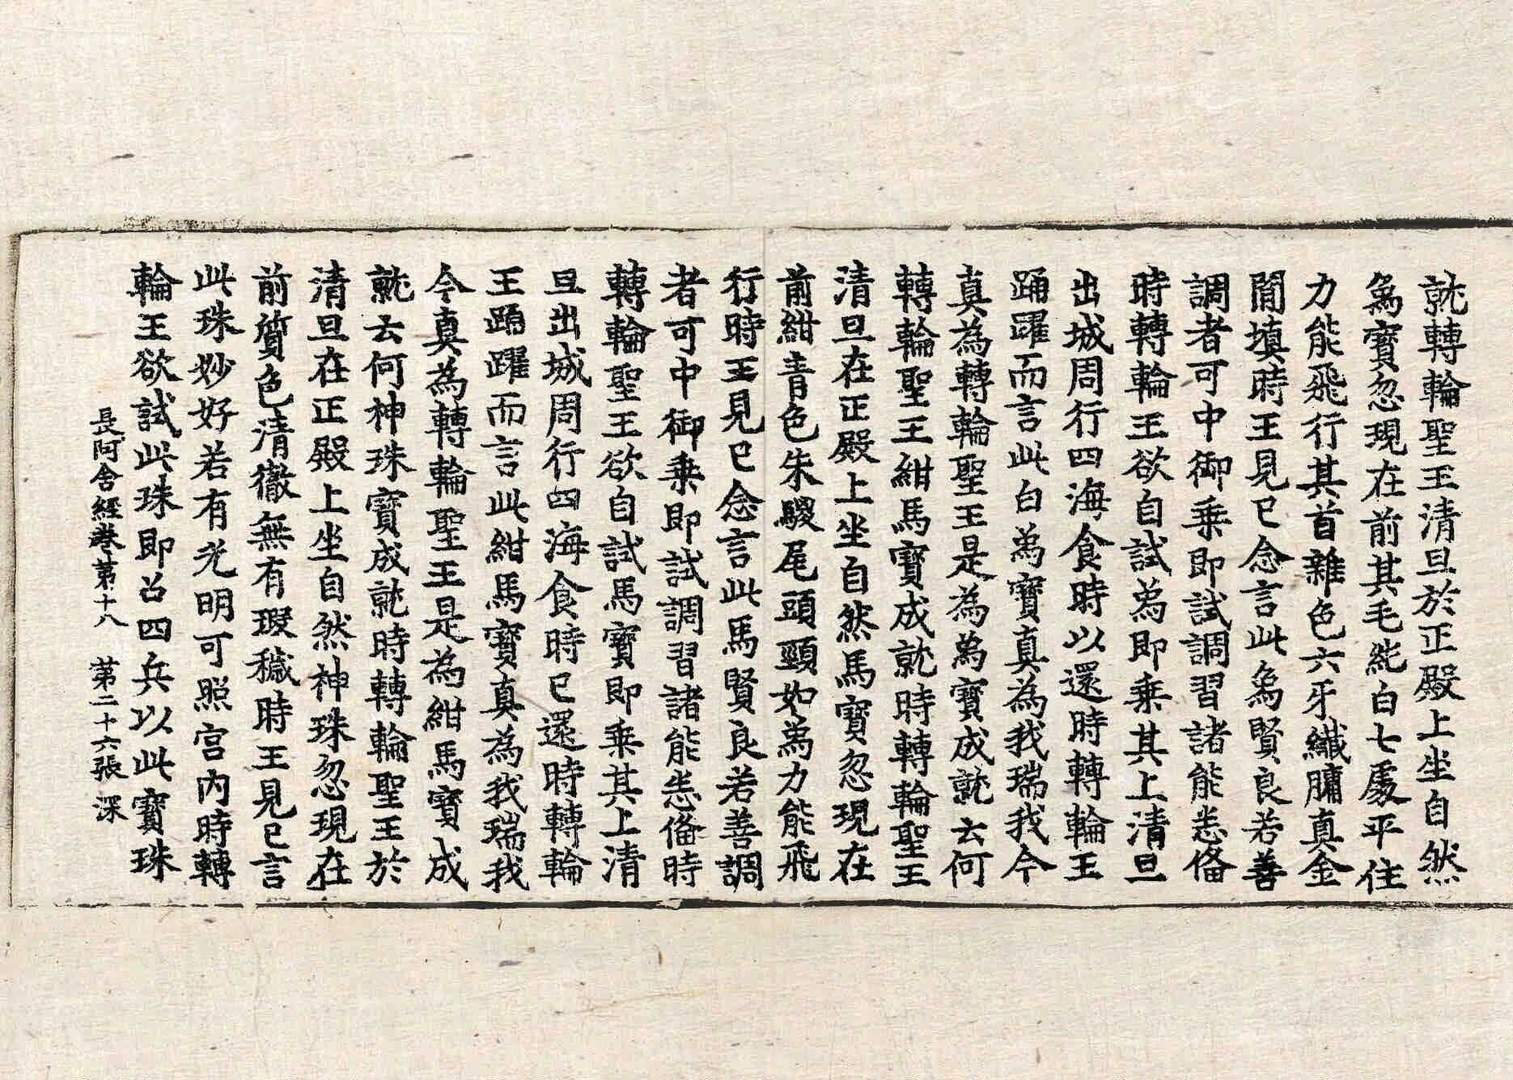 就轉輪聖王清旦於正殿上坐自然
象寶忽現在前其毛純白七處平住
力能飛行其首雜色六牙纖𦟛真金
間填時王見已念言此象賢良若善
調者可中御乘即試調習諸能悉俻
時轉輪王欲自試象即乘其上清旦
出城周行四海食時以還時轉輪王
踊躍而言此白象寶真為我瑞我今
真為轉輪聖王是為象寶成就云何
轉輪聖王紺馬寶成就時轉輪聖王
清旦在正殿上坐自然馬寶忽現在
前紺青色朱騣尾頭頸如象力能飛
行時王見已念言此馬賢良若善調
者可中御乘即試調習諸能悉俻時
轉輪聖王欲自試馬寶即乘其上清
旦出城周行四海食時已還時轉輪
王踊躍而言此紺馬寶真為我瑞我
今真為轉輪聖王是為紺馬寶成
就云何神珠寶成就時轉輪聖王於
清旦在正殿上坐自然神珠忽現在
前質色清徹無有瑕穢時王見已言
此珠妙好若有光明可照宮內時轉
輪王欲試此珠即召四兵以此寶珠
長阿含經卷第十八 第二十六張 深